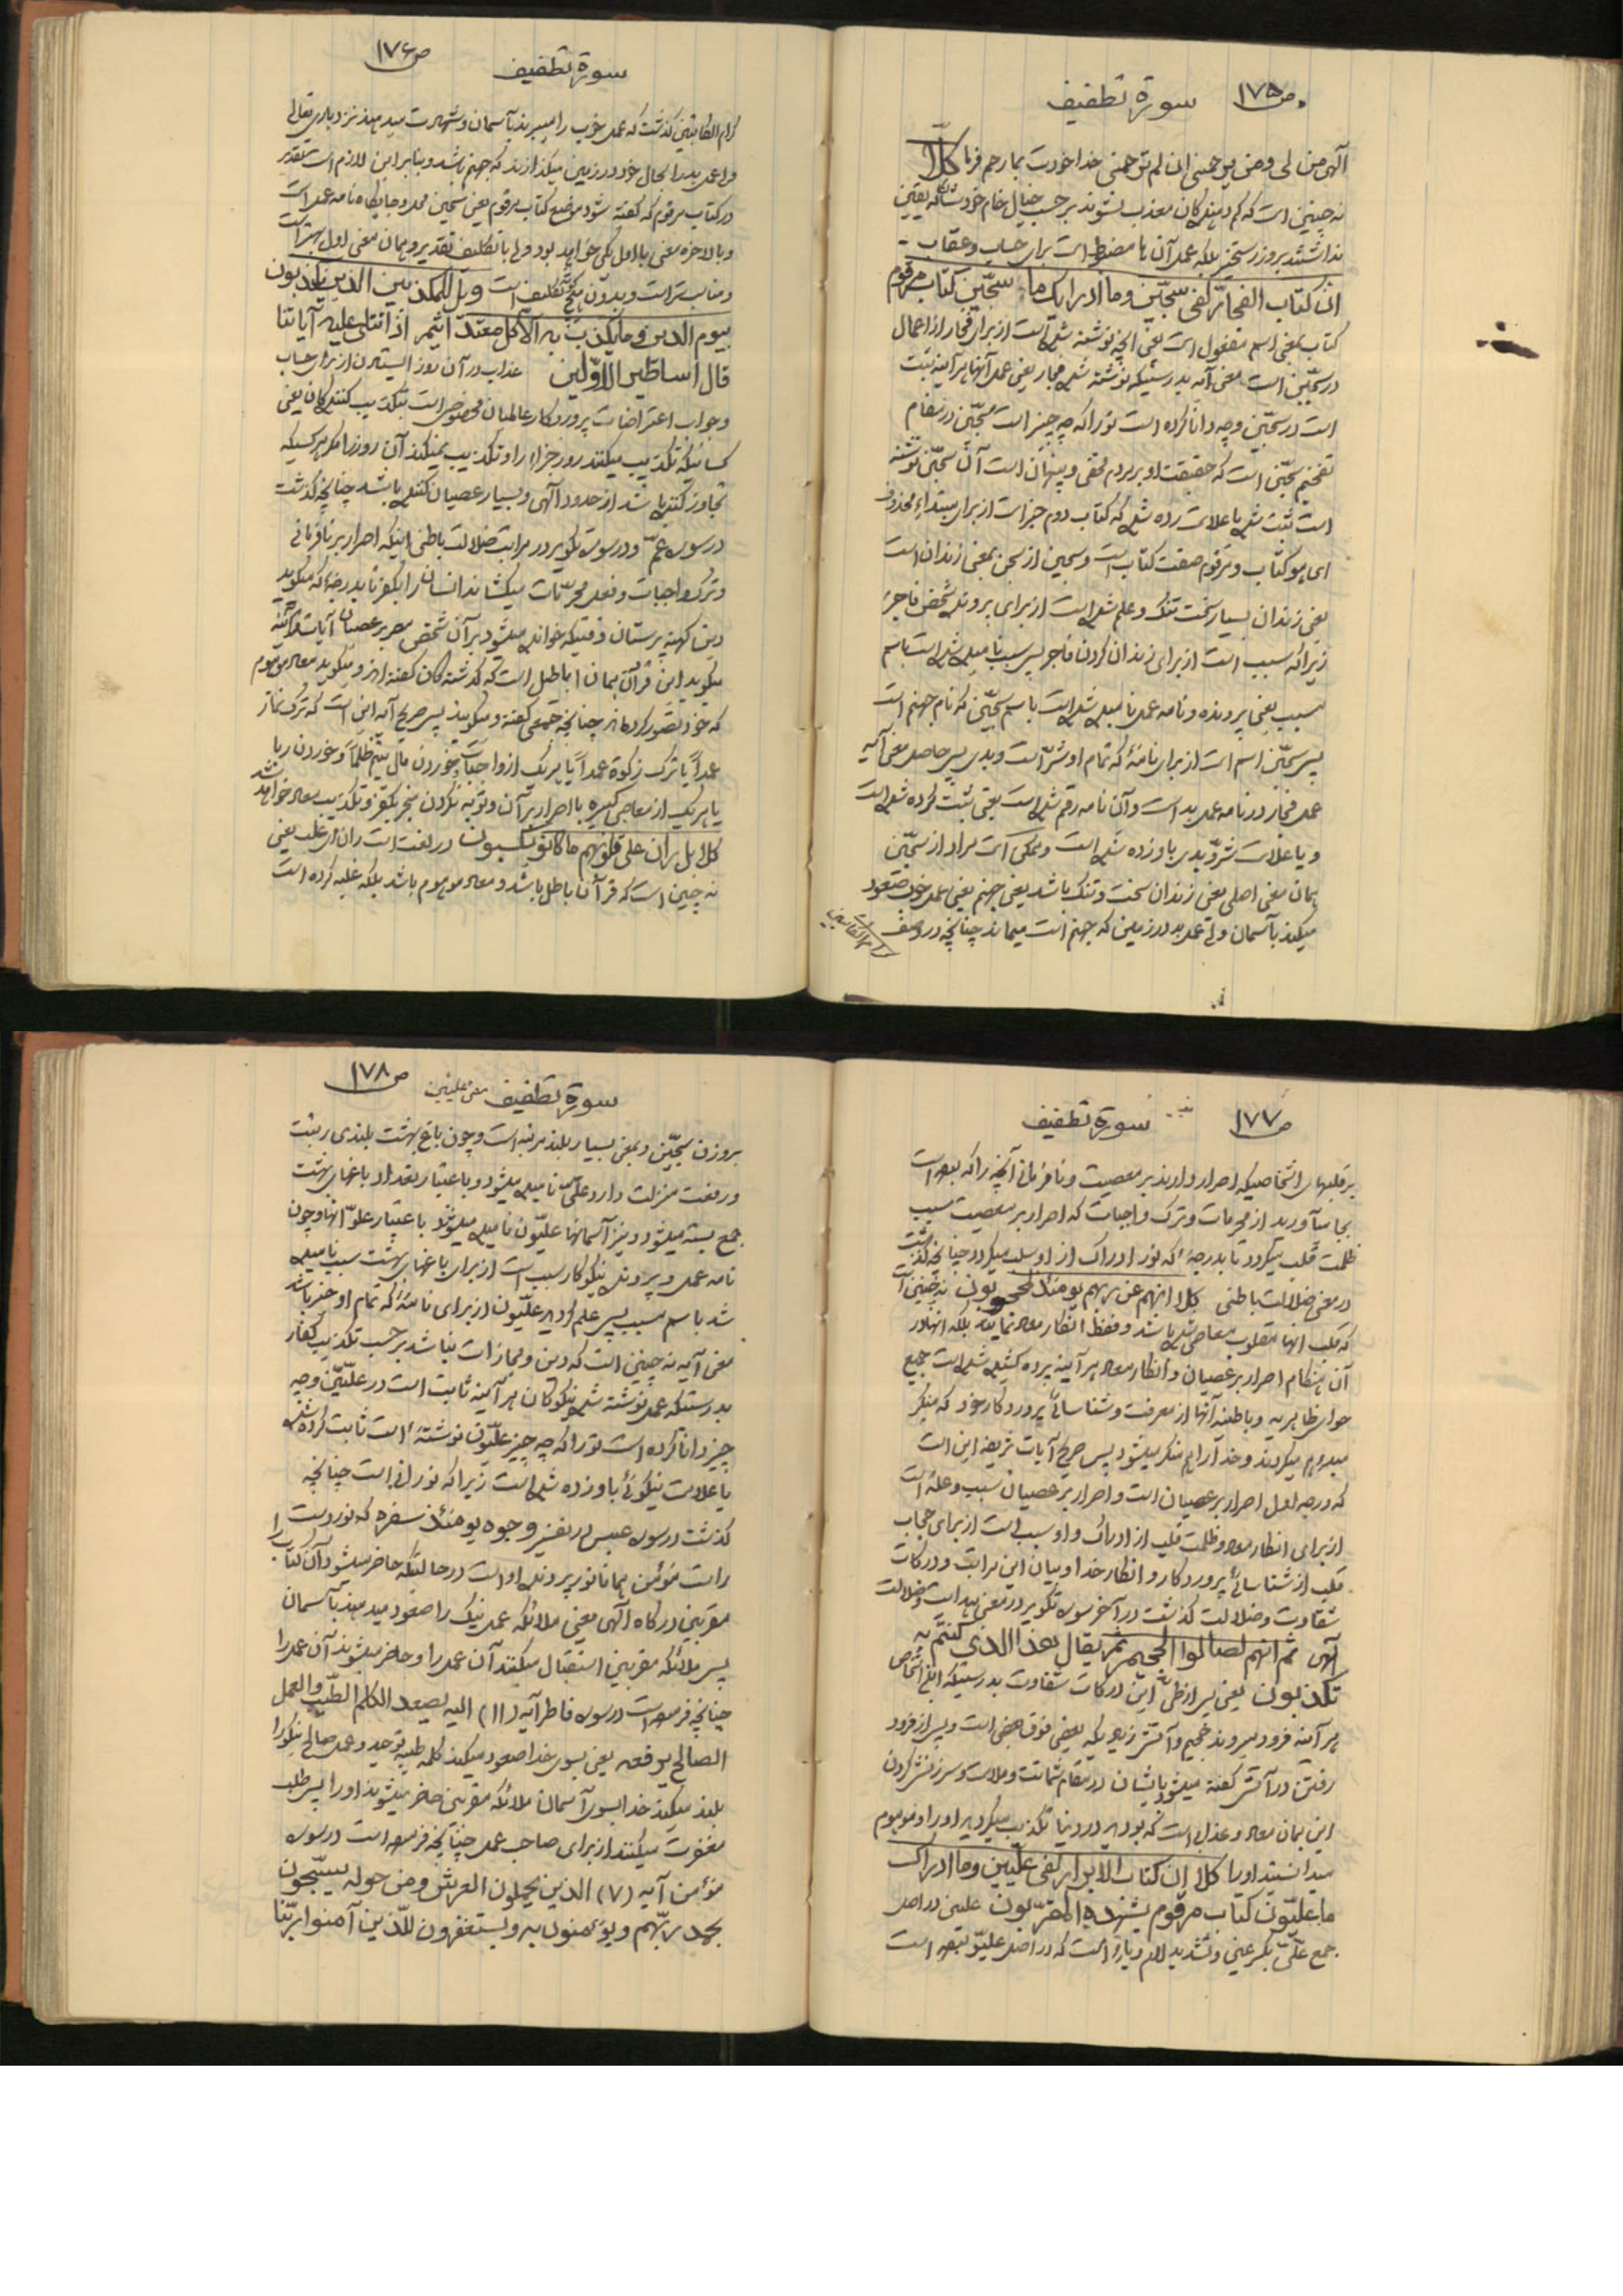 ص ۱۷۵ سورة تطفیف
الهی من لی و من یرحمنی ان لم ترحمنی خدا خودت بما رحم فرما کلّا
نه چنین است که کم دهندگان معذب نشوند بر حسب خیال خام خودشان که یقین
نداشتند بروز رستخیز بلکه عمل آن ها مضبوط است برای حساب و عقاب -
انّ کتاب الفجار لفی سجّین و ما ادرایک ما سجّین کتاب مرقوم
کتاب بمعنی اسم مفعول است یعنی آنچه نوشته شده است از برای فجار از اعمال
در سجّین است معنی آیه بدرستیکه نوشته شده فجار یعنی عمل آنها هر آینه ثبت
است در سجّین و چه دانا کرده است تو را که چه چیز است سجّین در مقام
تفخیم سجّین است که حقیقت او بر مردم مخفی و پنهان است آن سجّین نوشته
است ثبت شده یا علامت زده شده که کتاب دوم خبر است از برای مبتداء محذوف
ای هو کتاب و مرقوم صفت کتاب است و سجین از سجن بمعنی زندان است
یعنی زندان بسیار سخت تنگ و علم شده است از برای پرونده شخص فاجر
زیرا که سبب است از برای زندان کردن فاجر پس سبب نامیده شده است باسم
مسبب یعنی پرونده و نامه عمل نامیده شده است باسم سجّین که نام جهنم است
پس سجّین اسم است از برای نامهٔ که تمام او شرّ است و بدی پس حاصل معنی آیه
عمل فجار در نامه عمل بد است و آن نامه رقم شده است یعنی ثبت کرده شده است
و یا علامت شرّ و بدی باو زده شده است و ممکن است مراد از سجّین
همان معنی اصلی یعنی زندان سخت و تنگ باشد یعنی جهنم یعنی عمل خوب صعود
میکند بآسمان ولی عمل بد در زمین که جهنم است میماند چنانچه در وصف
کرام الکاتبین
ص ۱۷۶ سورة تطفیف
کرام الکاتبین گذشت که عمل خوب را میبرند بآسمان و شهرت میدهند نزد باری تعالی
و عمل بد را بحال خود در زمین میگذارند که جهنم باشد و بنا بر این لازم است تقدیر
در کتاب مرقوم که گفته شود موضع کتاب مرقوم یعنی سجّین محل و جایگاه نامه عمل است
و بالاخره معنی با اول یکی خواهد بود ولی با تکلیف تقدیر و همان معنی اول بهتر است
و مناسب تر است و بدون هیچ تکلیف است ویل للمکذبین الذین یکذبون
بیوم الدین و ما یکذب به الا کل معتد اثیم اذا تتلی علیه آیاتنا
قال اساطیر الاوّلین عذاب در آن روز ایستادن از برای حساب
و جواب اعتراضات پروردگار عالمیان مخصوص است بتکذیب کنندگان یعنی
کسانیکه تکذیب میکنند روز جزاء را و تکذیب نمیکند آن روز را مگر هر کسیکه
تجاوز کننده باشد از حدود الهی و بسیار عصیان کننده باشد چنانچه گذشت
در سوره عمّ و در سوره تکویر در مراتب ضلالت باطنی اینکه اصرار بر نافرمانی
و ترک واجبات و فعل محرّمات میکشاند انسان را بکفر تا بدرجهٔ که میگوید
دین کهنه پرستان وقتیکه خوانده میشود بر آن شخص مصر بر عصیان آیات قرآنیه
میگوید این قرآن همان اباطیل است که گذشته گان گفته اند و میگوید معاد موهوم
که خود تصور کرده اند چنانچه جمعی گفته و میگویند پس صریح آیه این است که ترک نماز
عمداً یا ترک زکوة عمداً یا هر یک از واجبات و خوردن مال یتیم ظلماً و خوردن ربا
یا هر یک از معاصی کبیره با اصرار بر آن و توبه نکردن منجر بکفر و تکذیب معاد خواهد شد
کلا بل ران علی قلوبهم ما کانو یکسبون در لغت است ران ای غلب یعنی
نه چنین است که قرآن باطل باشد و معاد موهوم باشد بلکه غلبه کرده است
ص ۱۷۷ سورة تطفیف
بر قلبهای اشخاصیکه اصرار دارند بر معصیت و نافرمانی آنچه را که بوده است
بجا میآورند از محرمات و ترک واجبات که اصرار بر معصیت سبب
ظلمت قلب میگردد تا بدرجهٔ که نور ادراک از او سلب میگردد چنانچه گذشت
در معنی ضلالت باطنی کلا انهم عن ربهم یومئذ لمحجوبون نه چنین است
که قلب آنها مغلوب معاصی شده باشد و فقط انکار معاد نمایند بلکه آنها در
آن هنگام اصرار بر عصیان و انکار معاد هر آینه پرده کشیده شده است جمیع
حواس ظاهریه و باطنیه آنها از معرفت و شناسائی پروردگار خود که منکر
مبدء هم میگردند و خدا را هم منکر میشود پس صریح آیات شریفه این است
که درجه اول اصرار بر عصیان است و اصرار بر عصیان سبب و علت است
از برای انکار معاد و ظلمت قلب از ادراک و او سبب است از برای حجاب
قلب از شناسائی پروردگار و انکار خدا و بیان این مراتب و درکات
شقاوت و ضلالت گذشت در آخر سوره تکویر در معنی هدایت و ضلالت
الهی ثم انهم لصالوا الجحیم ثم یقال هذا الذی کنتم به
تکذبون یعنی پس از طیّ این درکات شقاوت بدرستیکه این اشخاص
هر آینه فرود میروند جحیم و آتش زیادیکه بعضی فوق بعضی است و پس از فرود
رفتن در آتش گفته میشود بایشان در مقام شماتت و ملامت و سرزنش کردن
این همان معاد و عذاب است که بودید در دنیا تکذیب میکردید او را و موهوم
میدانستید او را کلا ان کتاب الابرار لفی علّیّین و ما ادراک
ما علیّون کتاب مرقوم یشهده المقرّبون علیین در اصل
جمع علّیّ بکسر عین و تشدید لام و یاء است که در اصل علیّو بوده است
ص ۱۷۸ سورة تطفیف معنی علیین
بر وزن سجّین و بمعنی بسیار بلند مرتبه است و چون باغ بهشت بلندی رتبت
و رفعت منزلت دارد علّیّ نامیده میشود و باعتبار تعداد باغهای بهشت
جمع بسته میشود و نیز آسمانها علیّون نامیده میشوند باعتبار علوّ آنها و چون
نامه عمل و پرونده نیکوکار سبب است از برای باغهای بهشت سبب نامیده
شد باسم مسبب پس علم گردید علّیّون از برای نامهٔ که تمام او خیر باشد
معنی آیه نه چنین است که دین و مجازات نباشد بر حسب تکذیب کفار
بدرستیکه عمل نوشته شده نیکوکان هر آینه ثابت است در علّیّین و چه
چیز دانا کرده است تو را که چه چیز علیّون نوشتهٔ است ثابت کرده شده
یا علامت نیکوئی باو زده شده است زیرا که نورانی است چنانچه
گذشت در سوره عبس در تفسیر وجوه یومئذ مسفره که نور دست
راست مؤمن همانا نور پرونده او است در حالتیکه حاضر میشود آن کتاب را
مقربین درگاه الهی یعنی ملائکه عمل نیک را صعود میدهند بآسمان
پس ملائکه مقربین استقبال میکنند آن عمل را و حاضر میشوند آن عمل را
چنانچه فرموده است در سوره فاطر آیه (۱۱) الیه یصعد الکلم الطیّب و العمل
الصالح یرفعه یعنی بسوی خدا صعود میکند کلمه طیبه توحید و عمل صالح نیکو را
بلند میکند خدا بسوی آسمان ملائکه مقربین حاضر میشوند او را پس طلب
مغفرت میکنند از برای صاحب عمل چنانچه فرموده است در سوره
مؤمن آیه (۷) الذین یحملون العرش و من حوله یسبّحون
بحمد ربّهم و یؤمنون به و یستغفرون للّذین آمنوا ربّنا